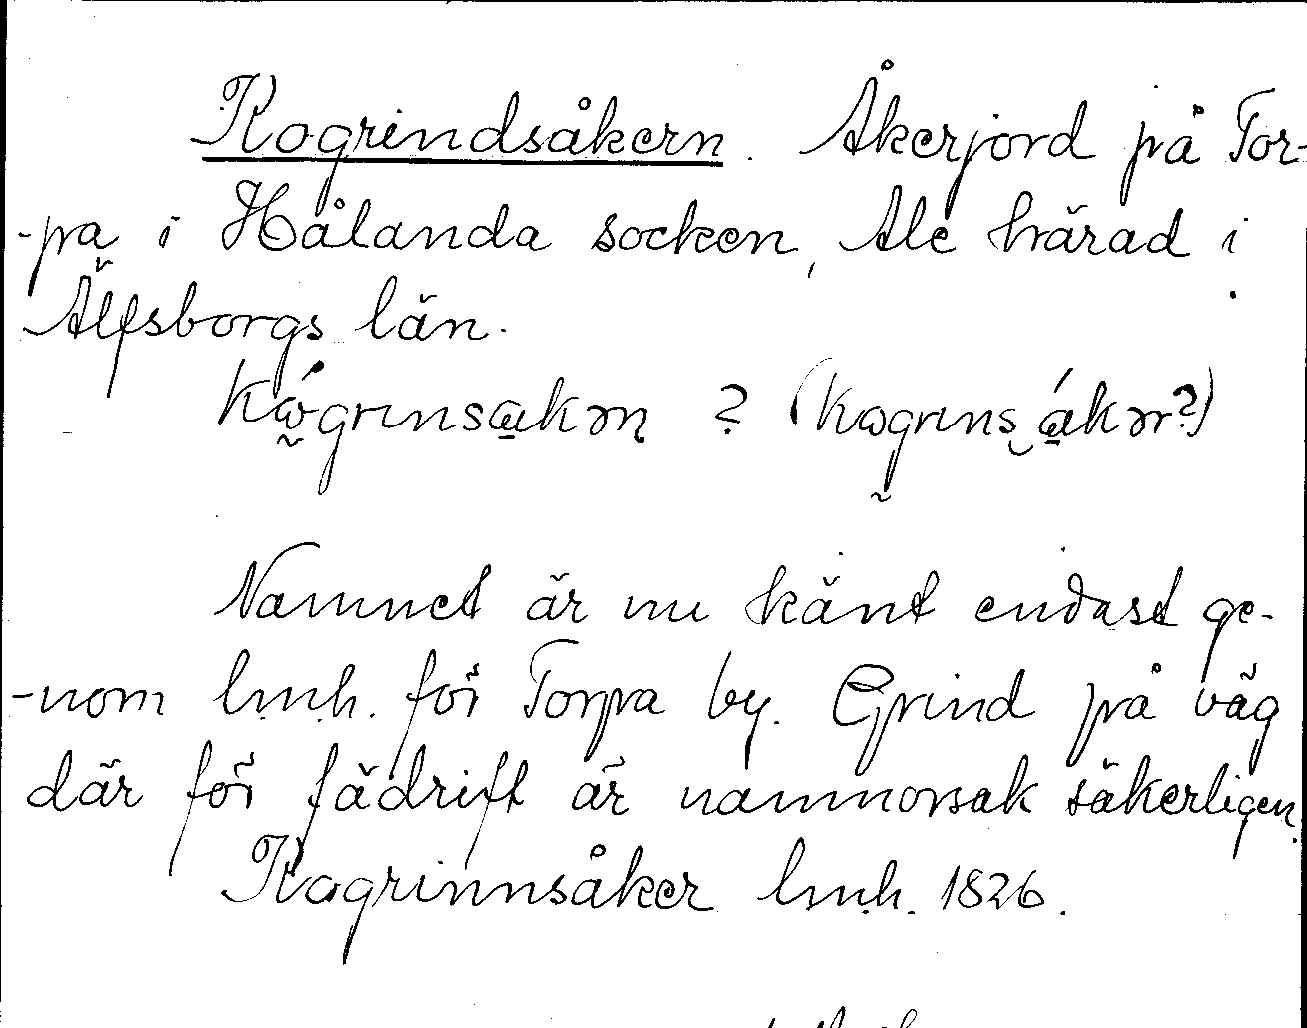 Kogrindsåkern. Åkerjord på Tor-
-pa i Hålanda socken, Ale härad i
Älfsborgs län.
kǫ́grinsakəṛn ? (kogrins ákər?)
Namnet är nu känt endast ge-
-nom lmh. för Torpa by. Grind på väg
där för fädrift är namnorsak säkerligen.
Kogrinnsåker lmh. 1826.